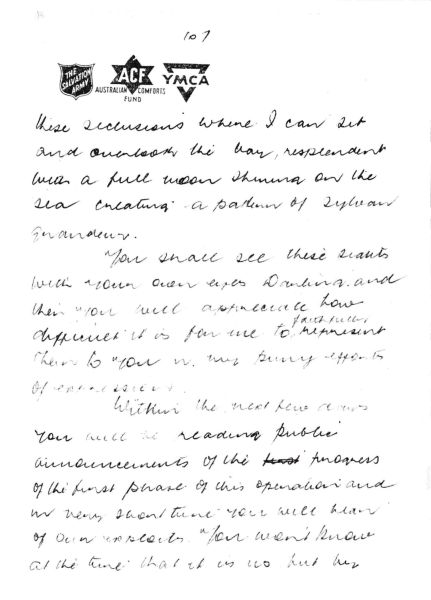 107
THE SALVATION ARMY
ACF
AUSTRALIAN COMFORTS FUND
YMCA
these seclusions where I can sit
and overlook the bay, resplendent
with a full moon shining on the
sea creating a pattern of sylvan
grandeur.
You shall see these sights
with your own eyes Darling and
then you will appreciate how
difficult it is for me to faithfully represent
them to you in my puny efforts
of expression.
Within the next few days
you will be reading public
announcements of the progress
of the first phase of this operation and
in very short time you will hear
of our exploits. You won't know
at the time that it is no